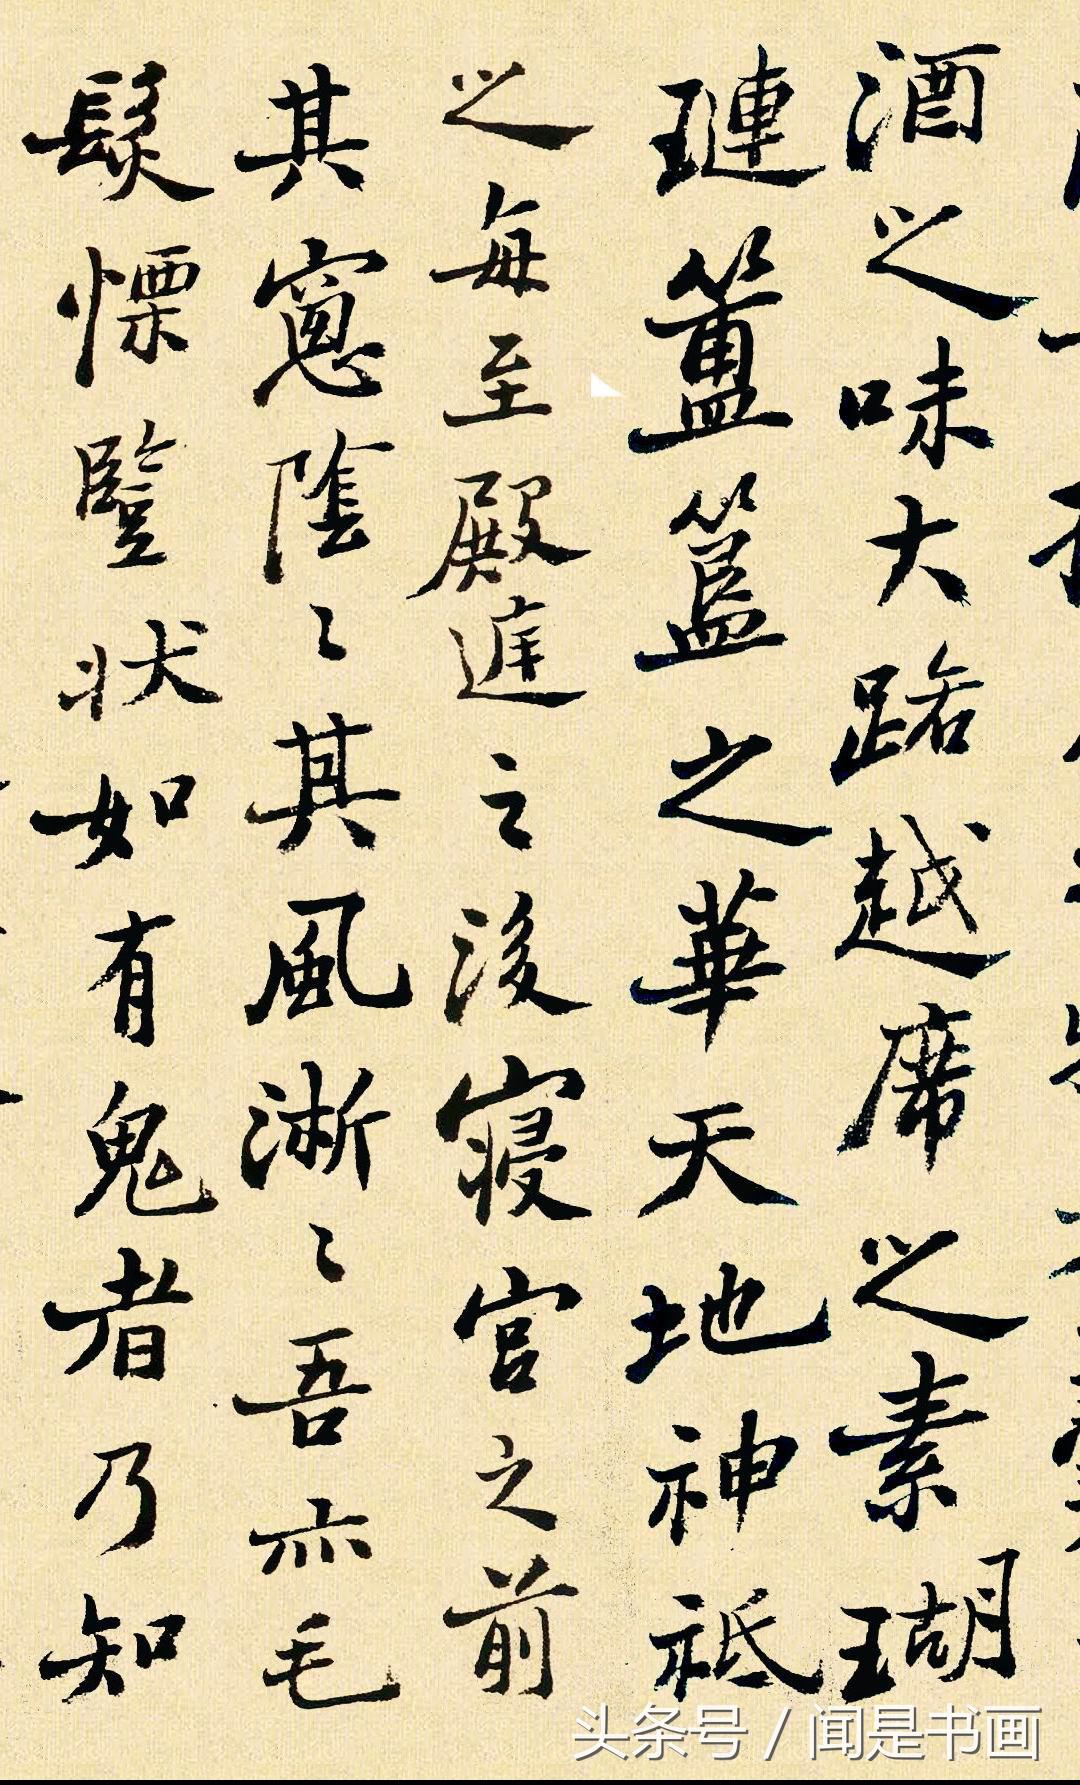 酒之味大路越席之素瑚
璉簠簋之華天地神祗
之每至殿廷之後寝宫之前
其窻陰〻其風淅〻吾亦毛
髮慄豎状如有鬼者乃知
头条号 / 闻是书画